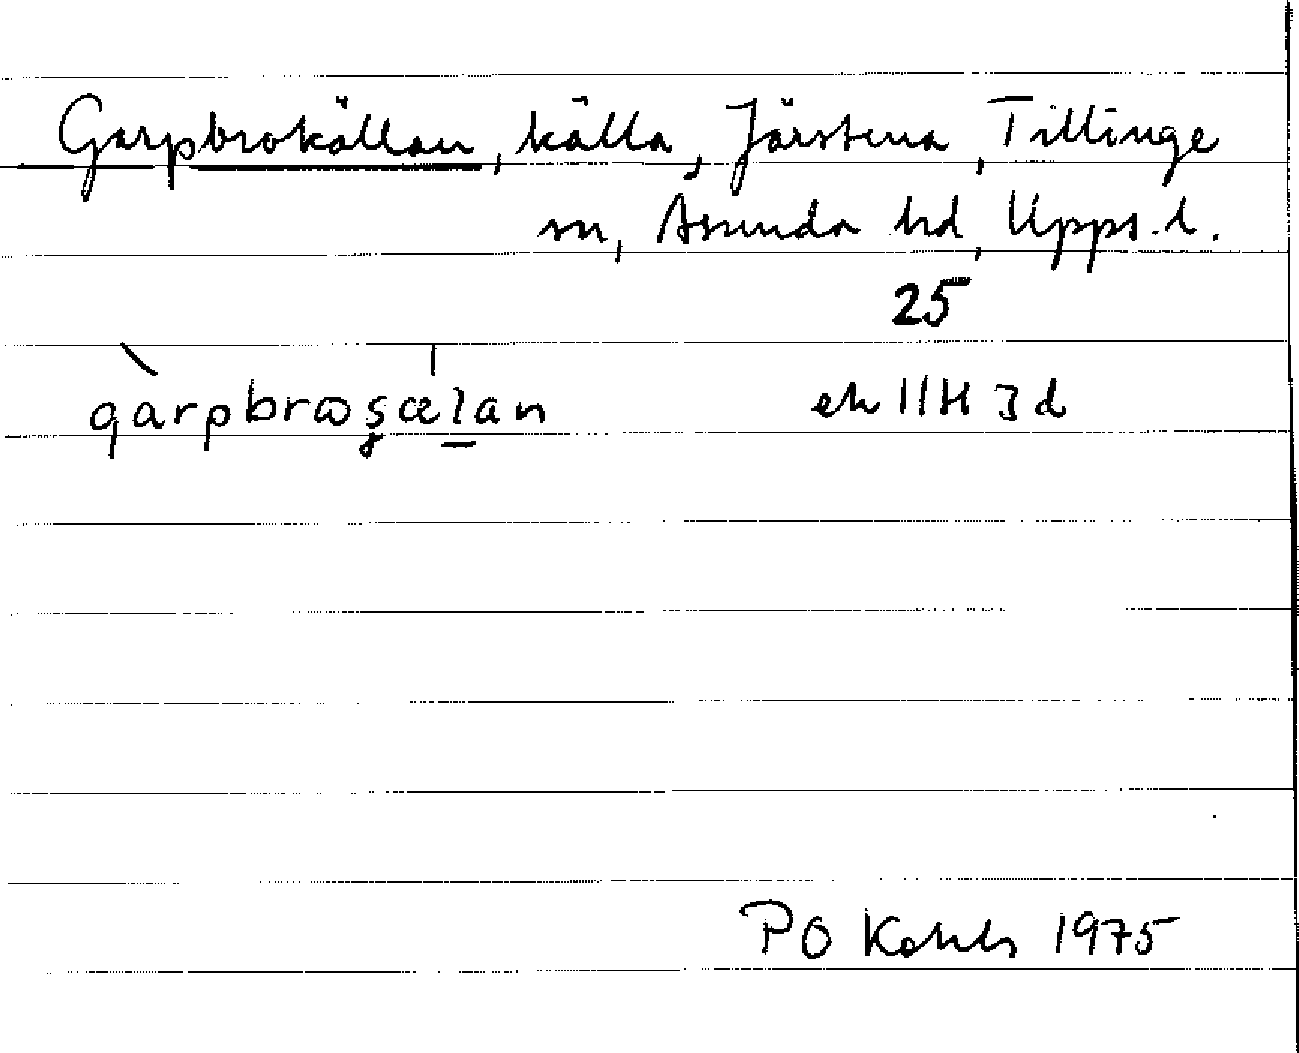 Garpbrokällan, källa, Järstena, Tillinge
sn, Åsunda hd, Upps. l.
25
gàrpbrɷʂæ̍l̲an ek 11H 3d
PO 1975